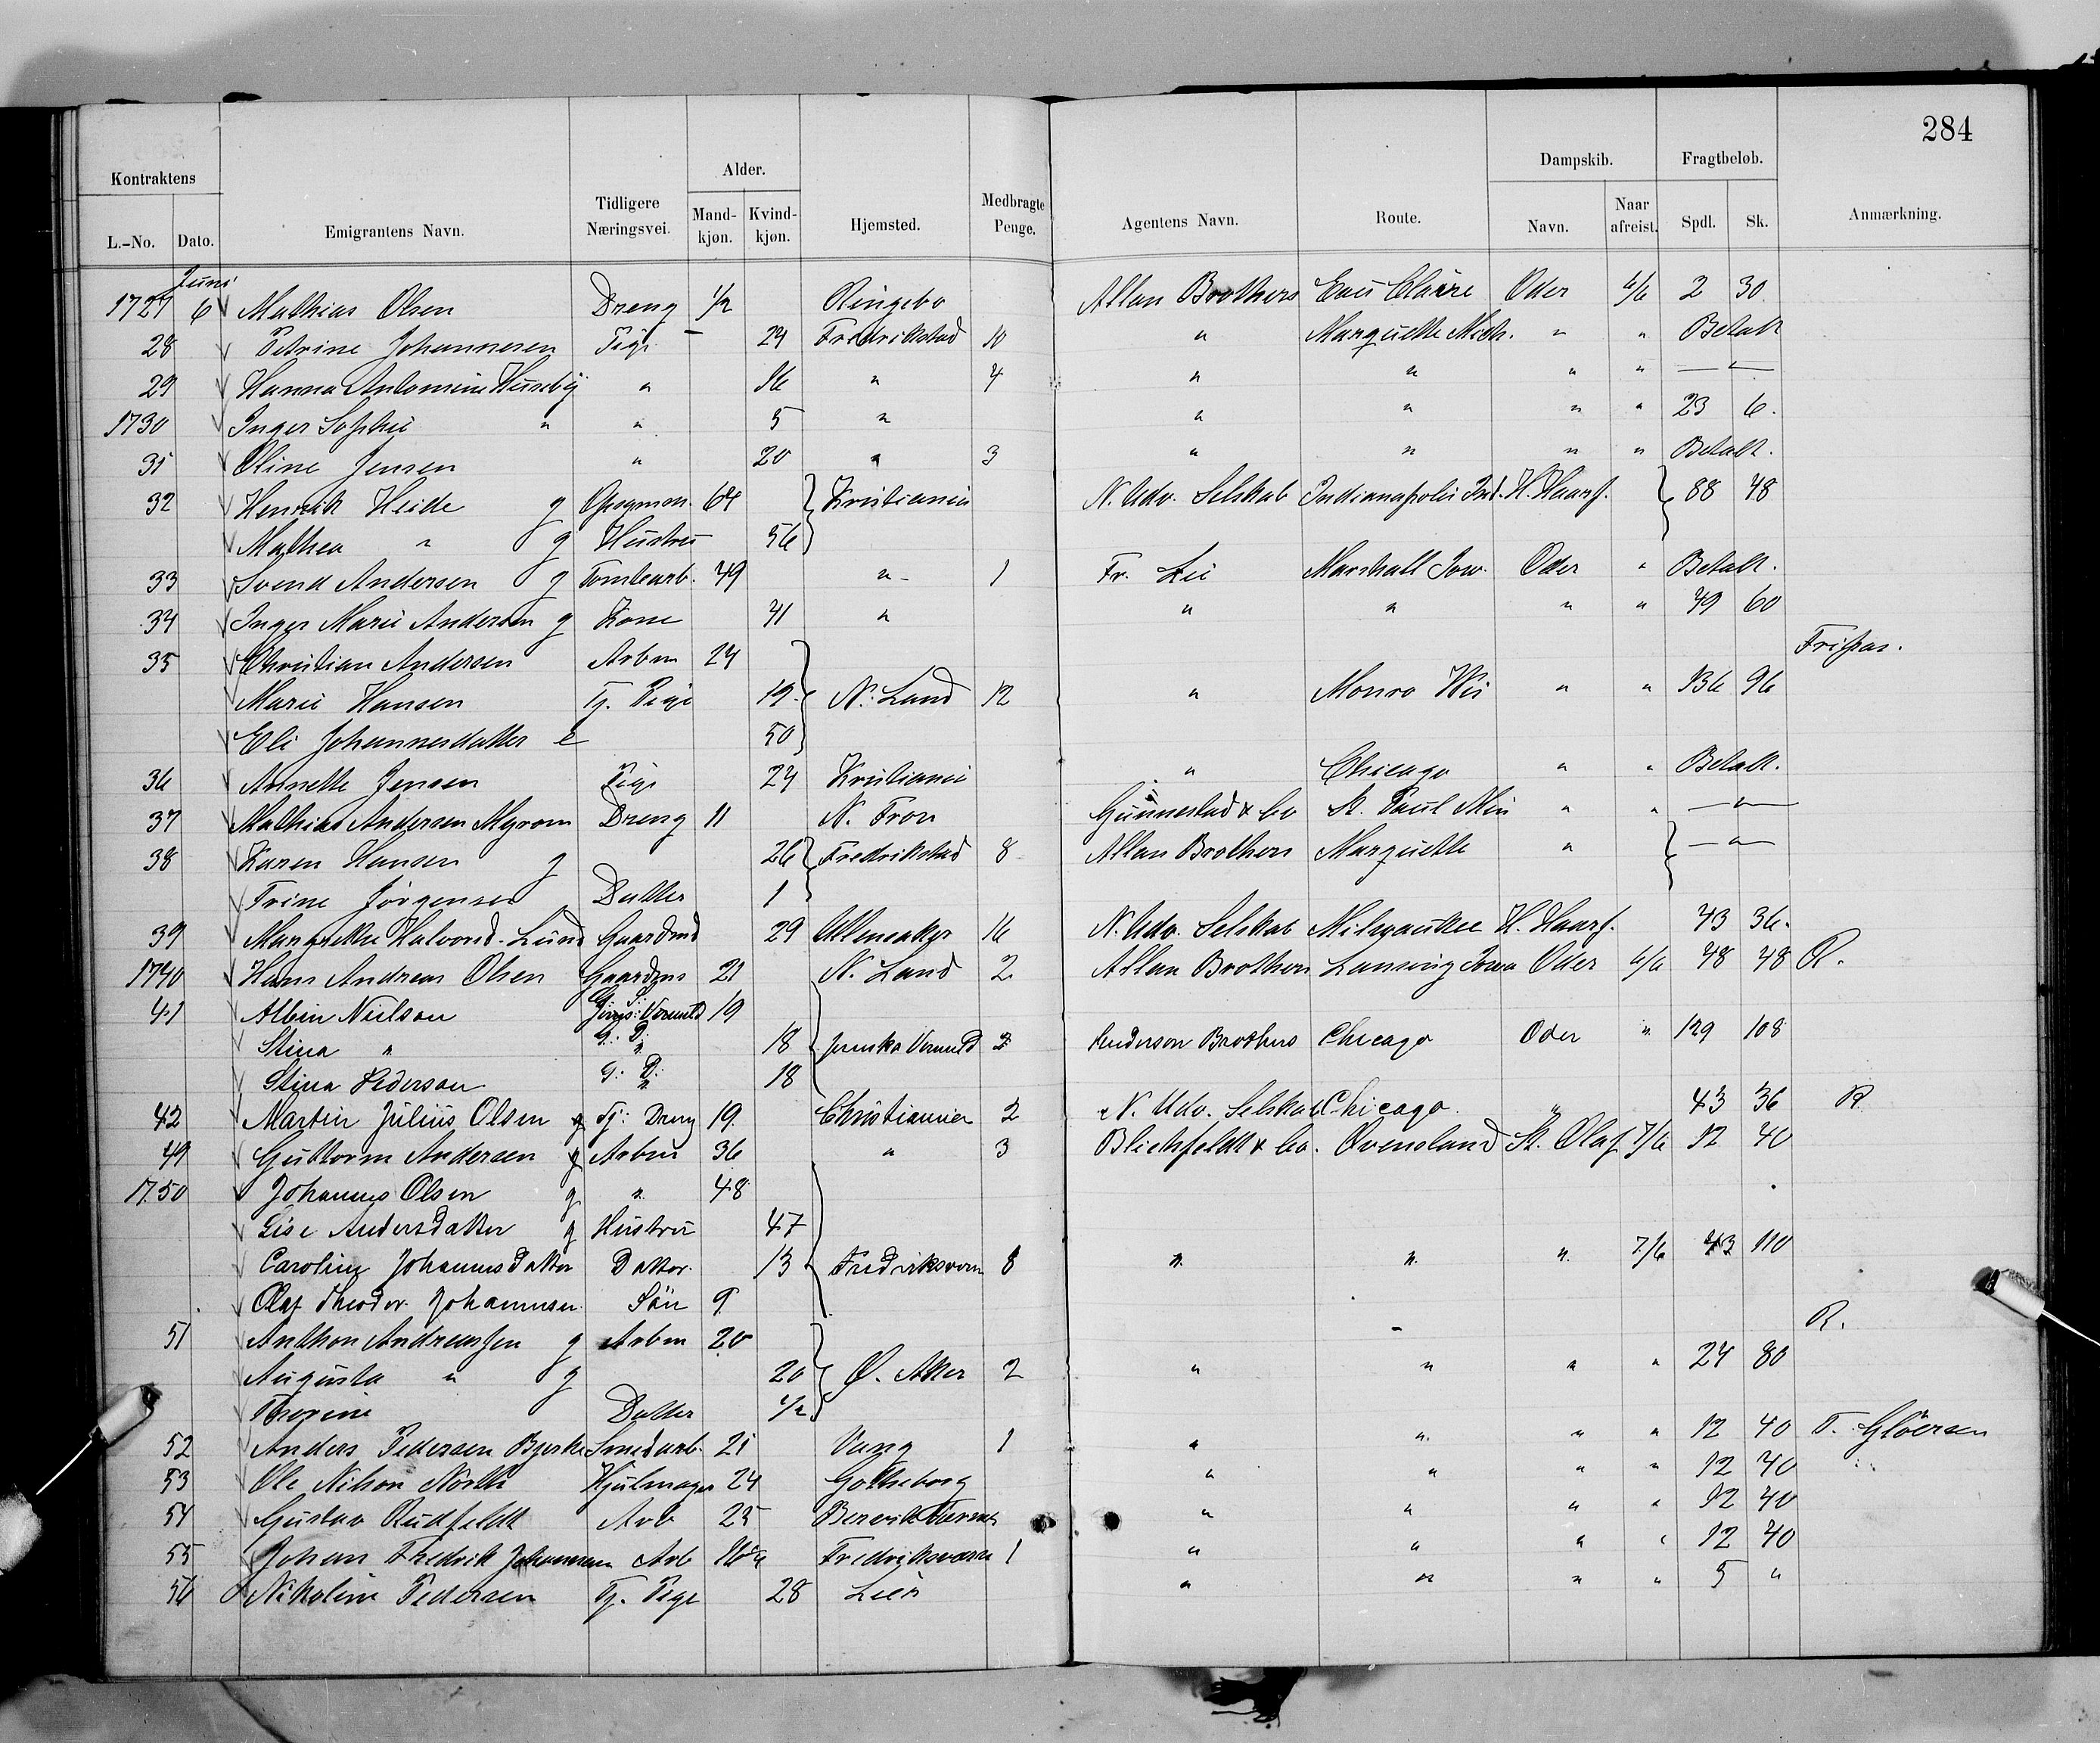 284
Kontraktens Emigrantens Navn. Tidligere Næringsvei. Alder. Hjemsted. Medbragte Penge. Agentens Navn. Route. Dampskib. Fragtbeløb. Anmærkning.
L.-No. Dato. Mand-kjøn. Kvind-kjøn. Navn. Naar afreist. Spdl. Sk.
Juni
1727 6 Mathias Olsen Dreng 1/2 Ringebo Allan Brothers Eau Claire Oder 6/6 2 30
28 Petrine Johannesen Pige 24 Fredrikstad 10 " Marquette Mich. " " Betalt
29 Hanna Antomine Huseby " 16 " 4 " " " " — " —
1730 Inger Sophie " " 5 " " " " " 23 6.
31 Oline Jensen " 20 " 3 " " " " Betalt.
32 Henrik Heide g Opsynsm. 64 Kristiania N. Udv. Selskab Indianapolis Ind. H. Haarf. 88 48
Mathea " g Hustru 56
33 Svend Andersen g Tomtearb. 49 " 1 Fr. Lie Marshall Iow. Oder " Betalt.
34 Inger Marie Andersen g Kone 41 " " " " " 49 60
35 Christian Andersen Arbm 24 Fripas.
Marie Hansen Tj. Pige 19 N. Land 12 " Monro Wis " " 136 96
Eli Johannesdatter e 50
36 Annette Jensen Pige 24 Kristiania " Chicago " " Betalt.
37 Mathias Andersen Myrom Dreng 11 N. Fron Gunnestad & Co St. Paul Min " " — " —
38 Karen Hansen g 26 Fredrikstad 8 Allan Brothers Marquette " — " —
Trine Jørgensen Datter 1
39 Margrethe Halvorsd. Lund Gaardmd 29 Ullensaker 16 N. Udv. Selskab Milwaukee H. Haarf. 43 36.
1740 Hans Andreas Olsen Gaardms 21 N. Land 2 Allan Brothers Lansing Iowa Oder 6/6 48 48 R.
41 Albin Nielson G: S: 19
Stina " G: D: 18 Jernska Vermeld 2 Anderson Brothers Chicago Oder " 129 108
Stina Pederson G: D: 18
42 Martin Julius Olsen g Tj: Dreng 19 Christiania 2 N. Udv. Selskab Chicago " 43 36 R
49 Guttorm Andersen g Arbm 36 " 3 Blichfeldt & Co. Qvensland St. Olaf 7/6 12 40
1750 Johannes Olsen g " 48
Lise Andersdatter g Hustru 47
Caroline Johannesdatter Datter 13 Fredriksværn 8 " " " 7/6 43 110
Olaf Theodor Johannesen Søn 9
51 Anthon Andreassen g Arbm 20 R.
Augusta " g 20 Ø. Aker 2 " " " " 24 80
Thorine Datter 1/2
52 Anders Pedersen Bjerke Smedarb. 21 Vang 1 " " " " 12 40 T. Gløersen
53 Ole Nilson North Hjulmager 24 Gotheborg " " " " 12 40
54 Gustav Rudfeldt Arb 25 " " " " 12 40
55 Johan Fredrik Johannesen Arb Fredriksværn 1 " " " " 12 40
56 Nikoline Pedersen Tj. Pige 28 Lier " " " " 5 "